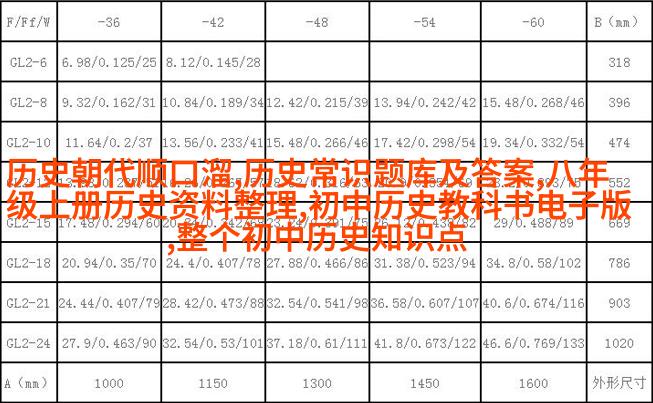 F/Ff/W -36 -42 -48 -54 -60 B（mm）
GL2-6 6.98/0.125/25 8.12/0.145/28 318
GL2-8 9.32/0.162/31 10.84/0.189/34 12.42/0.215/39 13.94/0.242/42 15.48/0.268/46 396
GL2-10 11.64/0.2/37 13.56/0.233/41 15.48/0.266/46 17.42/0.298/54 19.34/0.332/54 474
历史朝代顺口溜,历史常识题库及答案,八年
552
级上册历史资料整理,初中历史教科书电子版
GL2-15 17.48/0.294/60 29/0.488/89 669
,整个初中历史知识点
GL2-18 20.94/0.35/70 24.4/0.407/78 27.88/0.466/86 31.38/0.523/94 34.8/0.58/102 786
GL2-21 24.44/0.407/79 28.42/0.473/88 32.54/0.541/98 36.58/0.607/107 40.6/0.674/116 903
GL2-24 27.9/0.463/90 32.54/0.53/101 37.18/0.61/111 41.8/0.673/122 46.6/0.769/133 1020
A（mm） 1000 1150 1300 1450 1600 外形尺寸